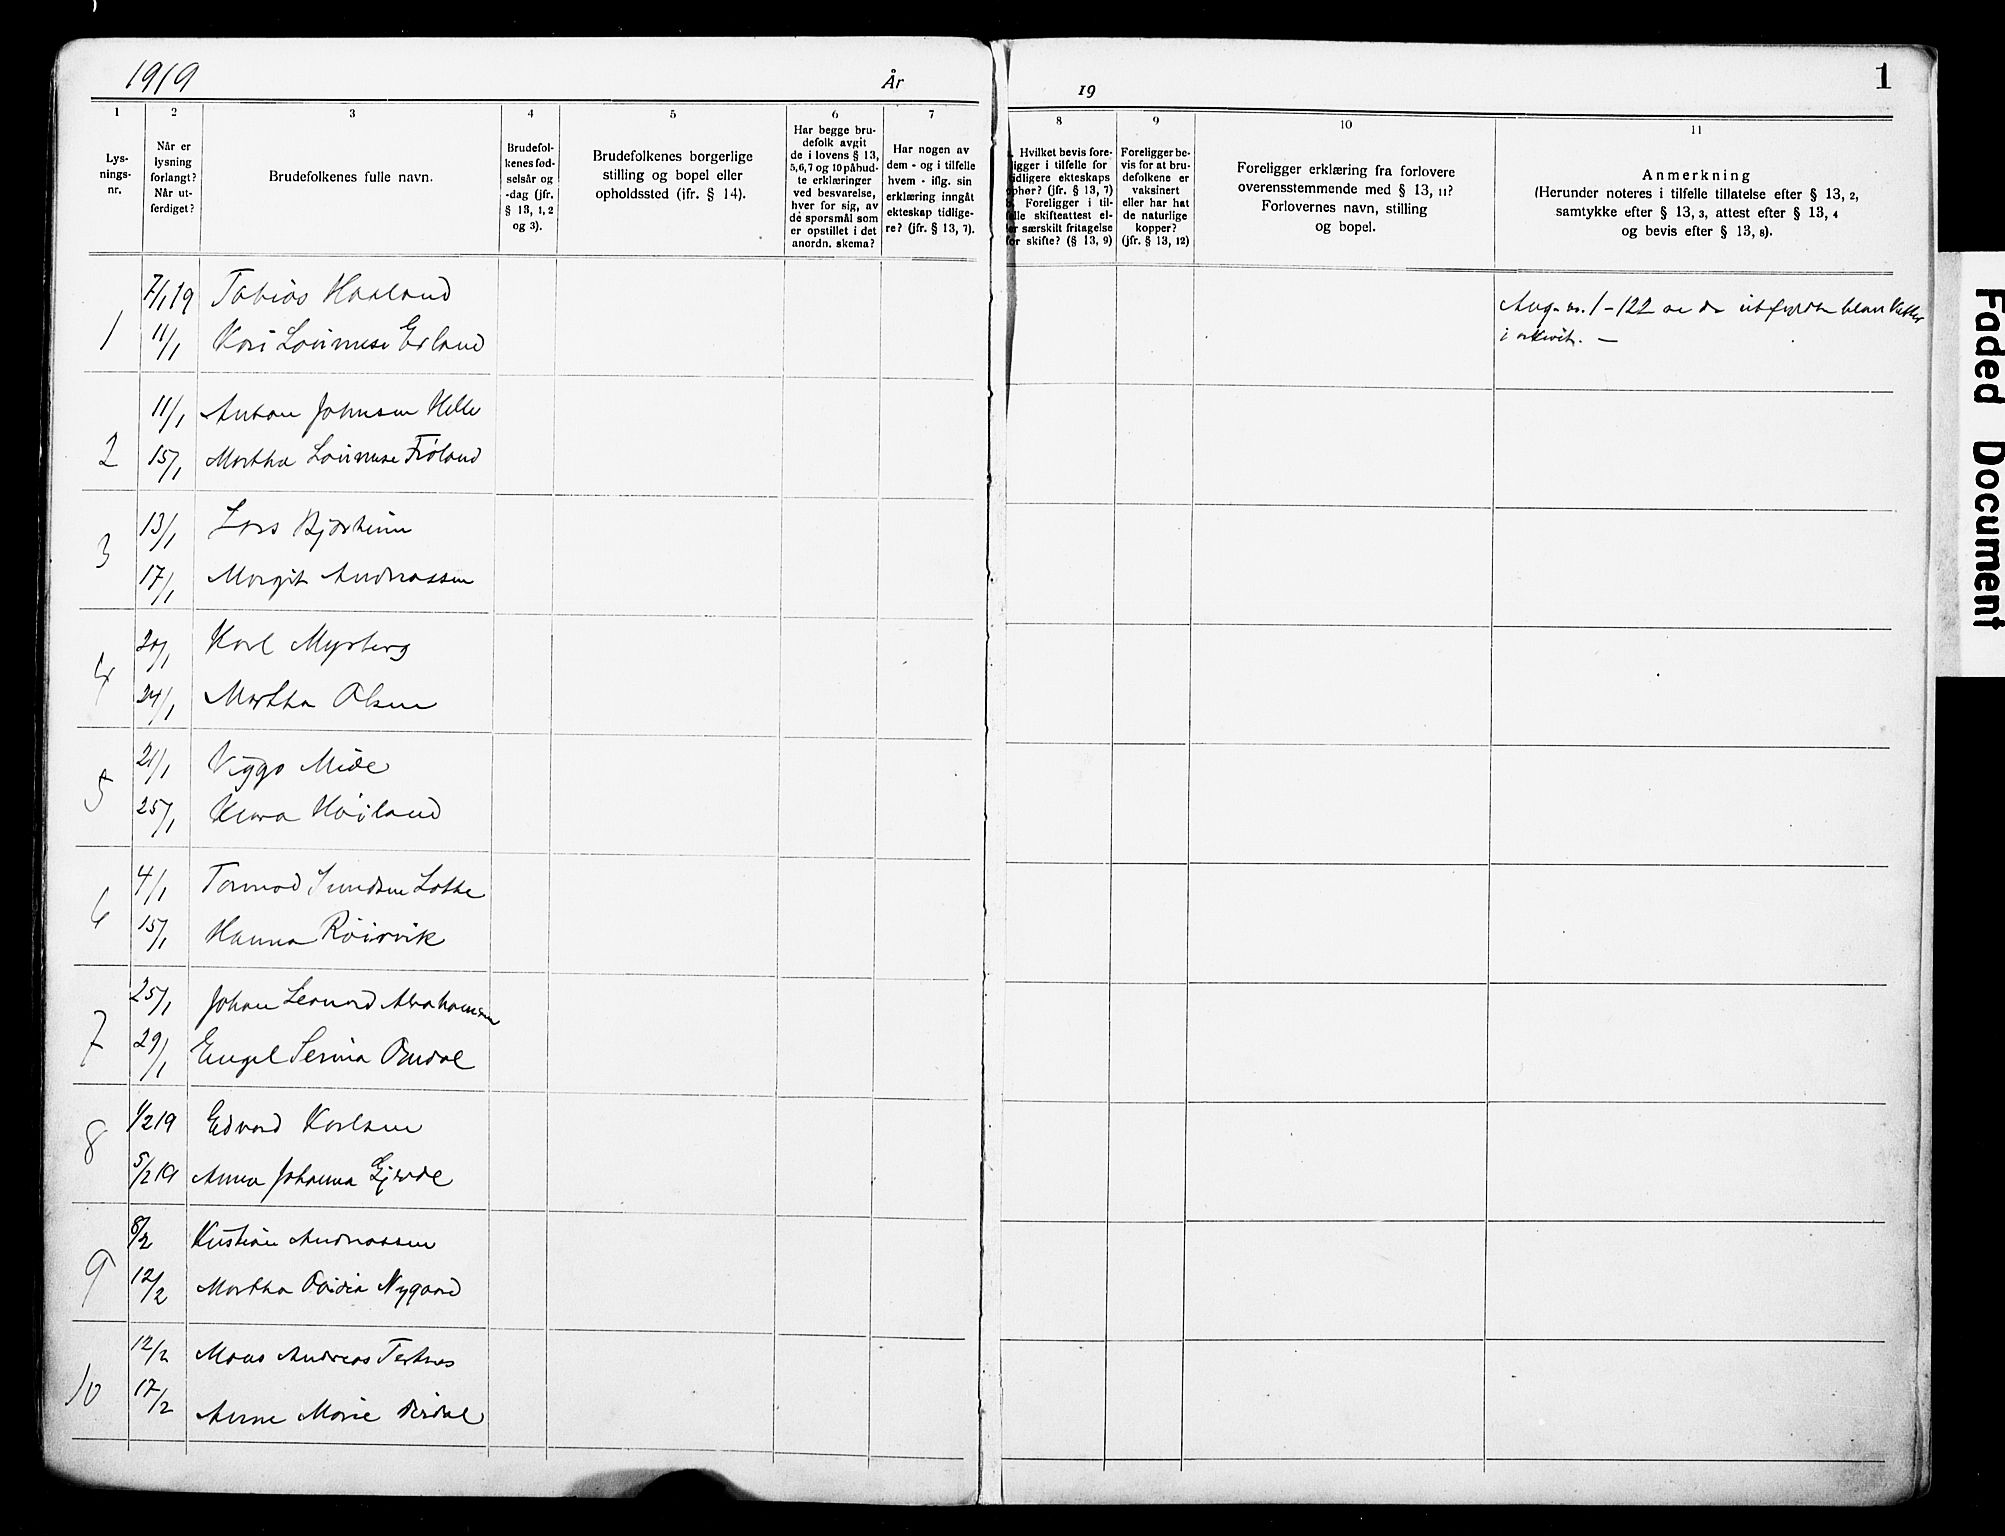 1919
År
19
1
1
2
3
4
5
6
7
8
9
10
11
Lys-
nings-
nr.
Når er
lysning
forlangt?
Når ut-
ferdiget?
Brudefolkenes fulle navn.
Brudefol-
kenes fød-
selsår og
-dag (jfr.
§ 13, 1, 2
og 3).
Brudefolkenes borgerlige
stilling og bopel eller
opholdssted (ifr. § 14).
Har begge bru-
defolk avgit
de i lovens § 13,
5,6,7 og 10 påbud-
te erklæringer
ved besvarelse,
hver for sig, av
de spørsmål som
er opstillet i det
anordn. skema?
Har nogen av
dem - og i tilfelle
hvem - iflg. sin
erklæring inngåt
ekteskap tidlige-
re? (jfr. § 13, 7).
Hvilket bevis fore-
ligger i tilfelle for
tidligere ekteskaps
ophør? (jfr. § 13, 7)
Foreligger i til-
felle skifteattest el-
er særskilt fritagelse
for skifte? (§ 13, 9)
Foreligger be-
vis for at bru-
defolkene er
vaksinert
eller har hat
de naturlige
kopper?
(jfr. § 13, 12)
Foreligger erklæring fra forlovere
overensstemmende med § 13, 11?
Forlovernes navn, stilling
og bopel.
Anmerkning
(Herunder noteres i tilfelle tillatelse efter § 13, 2,
samtykke efter § 13, 3, attest efter § 13, 4
og bevis efter § 13, 8).
1
7/1 19 Tobias Haaland
11/1 Kari Lovinuse Erland
Ang. nr. 1-122 se de utfyldte blanketter
i arkivet. —
2
11/1 Anton Johnsen Helle
15/1 Martha Lovinuse Frøland
3
13/1 Lars Bjørheim
17/1 Margit Andreassen
4
20/1 Karl Myrberg
24/1 Martha Olsen
5
21/1 Viggo Mide
25/1 Klara Høiland
6
4/1 Tormod Lothe
15/1 Hanna Röirvik
7
25/1 Johan Leonard Abrahamsen
29/1 Engel Serina Omdal
8
1/2 19 Edvard Karlsen
5/2 19 Anna Johanna Gjerde
9
8/2 Kristian Andreassen
12/2 Martha Ovidia Nygaard
10
12/2 Maus Andreas Tertnes
17/2 Anne Marie Dirdal
Faded Document